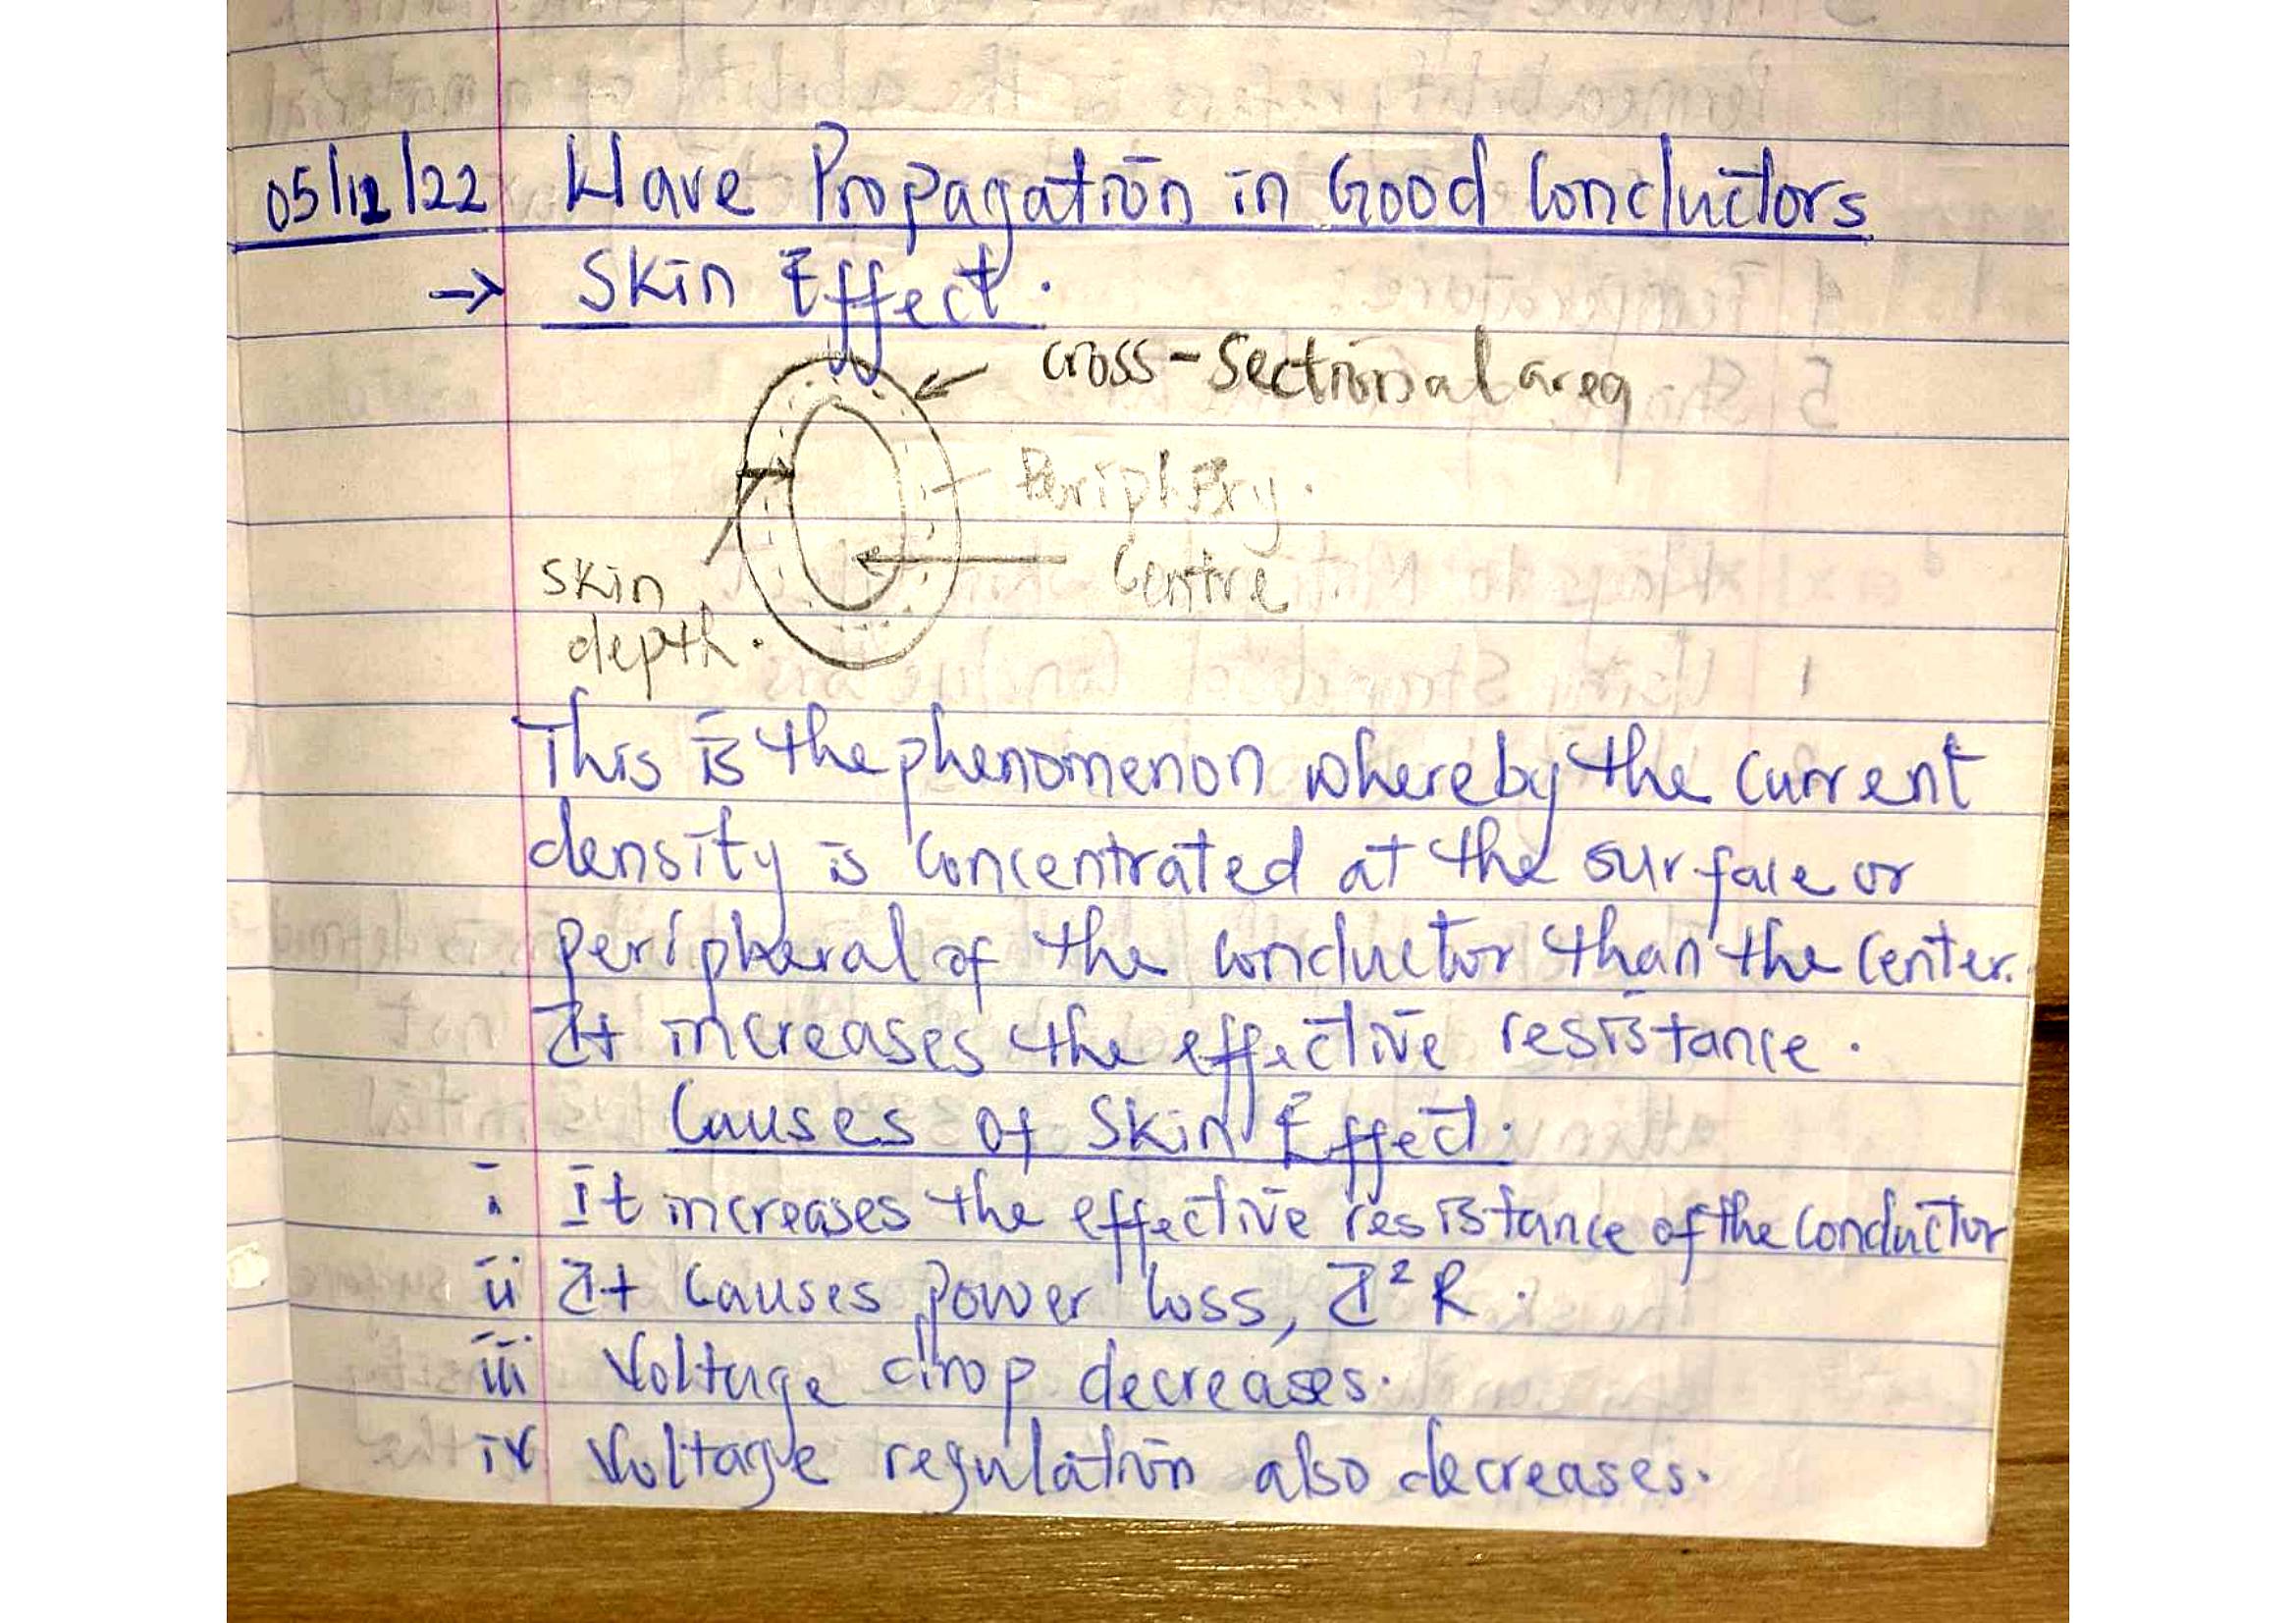 05/12/22 Wave Propagation in Good Conductors
→ Skin Effect.
cross-Sectional area
Periphery.
Centre
Skin
depth.
This is the phenomenon whereby the current
density is concentrated at the surface or
peripheral of the conductor than the center.
It increases the effective resistance.
Causes of Skin Effect.
i. It increases the effective resistance of the conductor
ii It causes power loss, I²R.
iii Voltage drop decreases.
iv Voltage regulation also decreases.